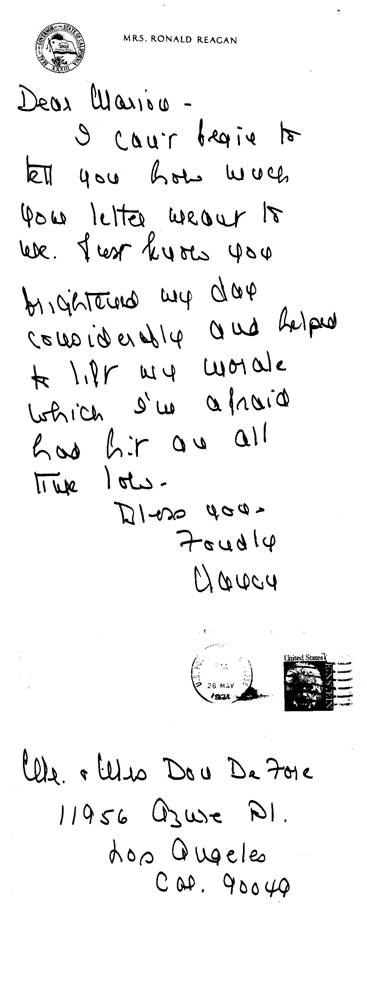 MRS. RONALD REAGAN
Dear Marion -
I can't begin to
tell you how much
your letter meant to
me. Just know you
brightened my day
considerably and helped
to lift my morale
which I'm afraid
has hit an all
time low -
Bless you -
Fondly
Nancy
26 MAY
United States
Mr. & Mrs Don De Fore
11956 Azure Dr.
Los Angeles
Cal. 90049